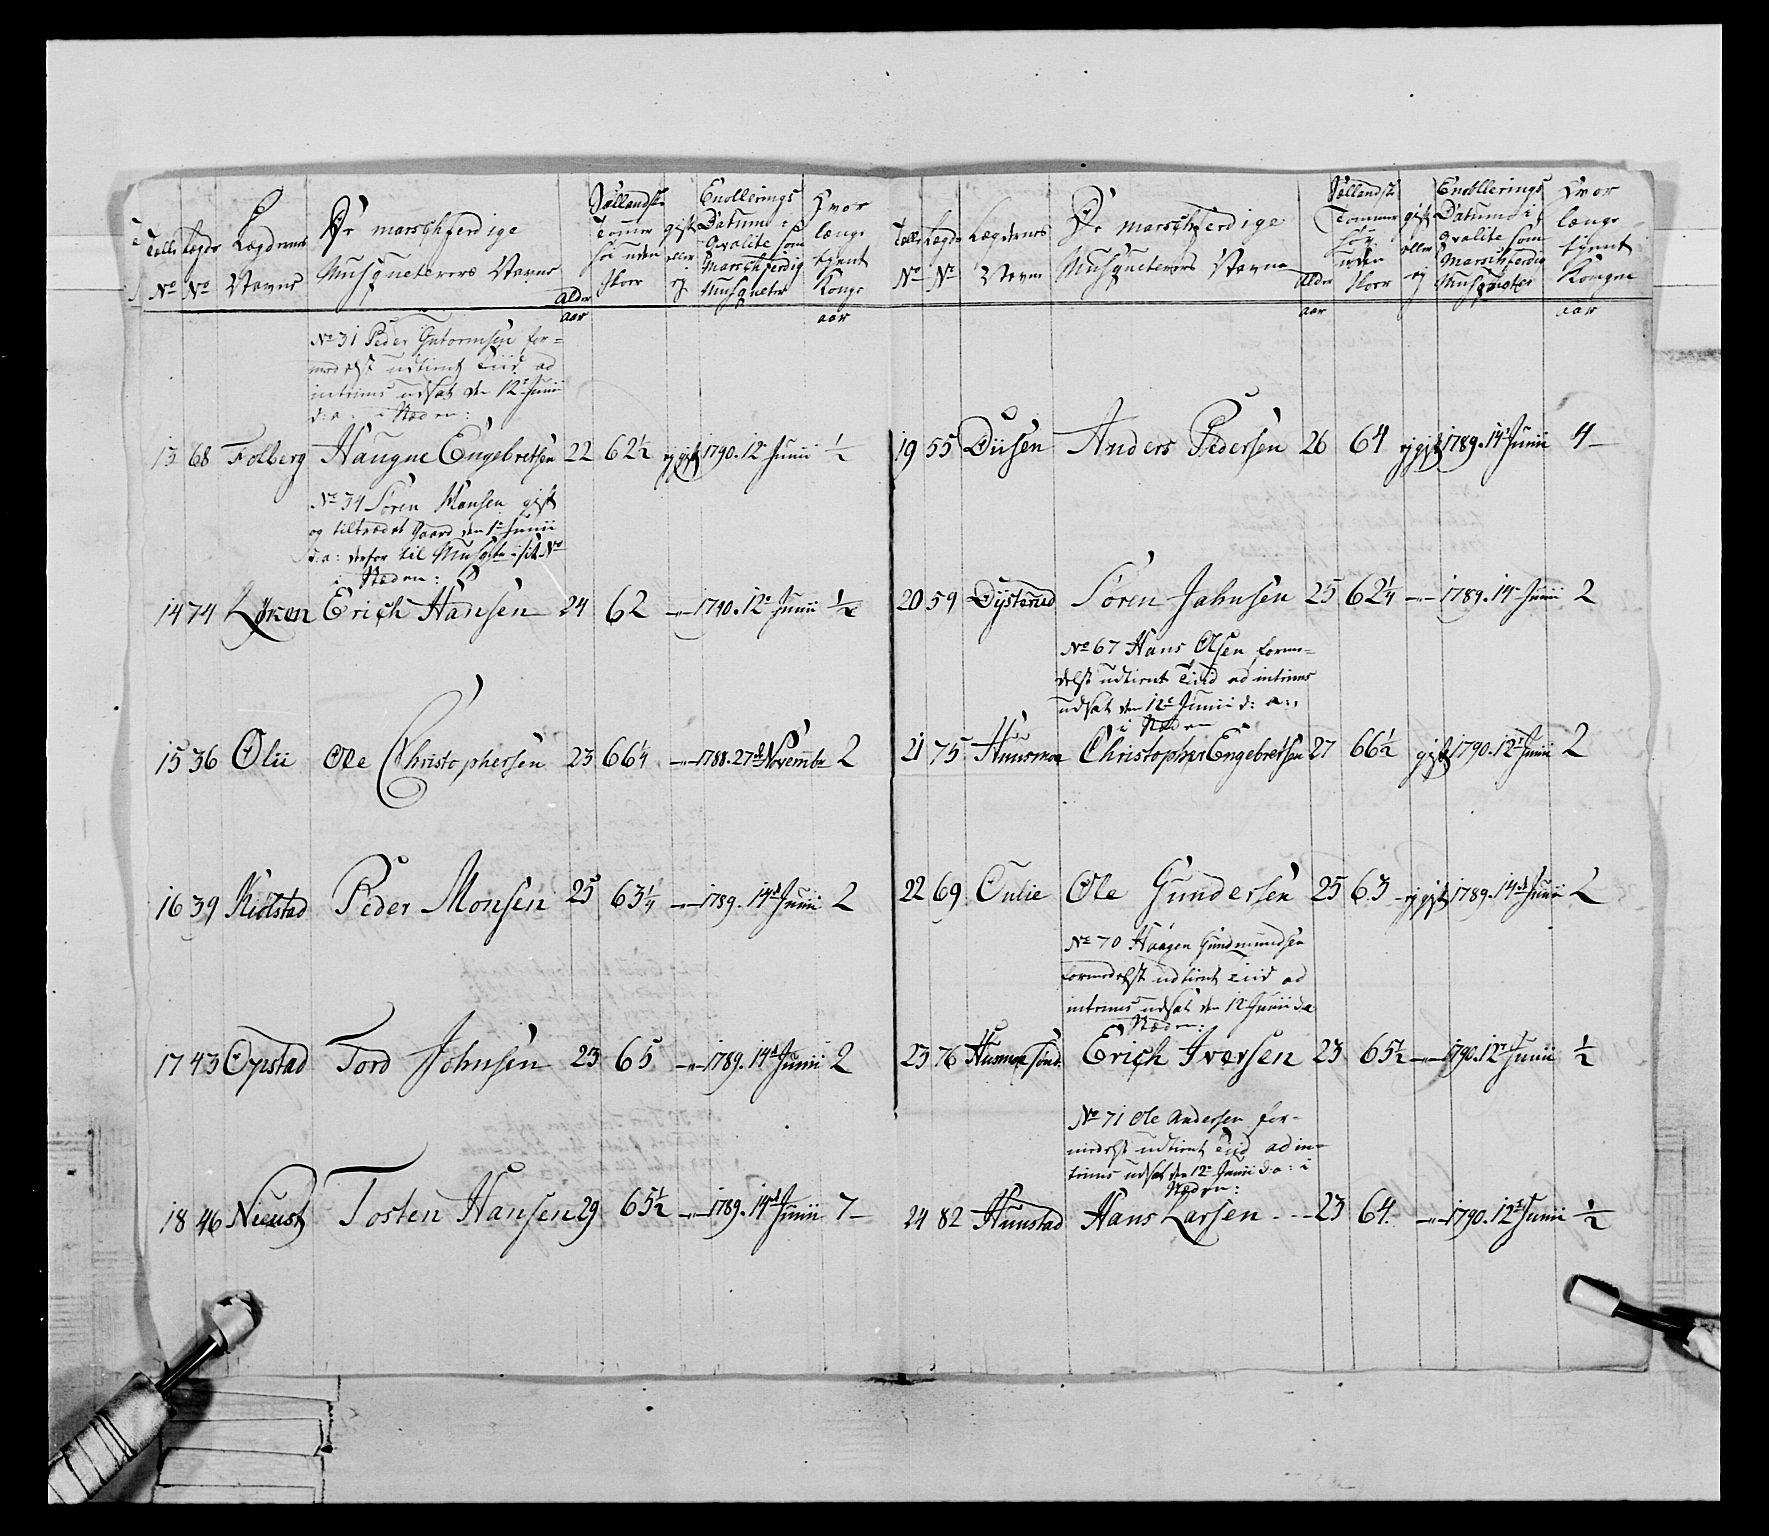 Talls No | Lægds No | Lægdernes Navne | De marschferdige Musqueterers Navne | alder aar | Sællandske Tommer høi uden skoer | gift eller ej | Enollerings Datum i Qvalite som Marschferdig Musqueter | Hvor længe tient Konge aar
No 31 Peder Gutormsen for=
medelst udtient Tiid ad
intrims udsat den 12te Junii
d: a: i Stæden:
13 68 Folberg Haagne Engebretsen 22 62½ ej gift 1790. 12te Junii ½
No 34 Sören Hansen gift
og tiltrædet Gaard den 1te Junii
d: a: derfor til i sit No
i Stæden:
14 74 Løken Erich Hansen 24 62 -"- 1790. 12te Junii ½
15 36 Olii Ole Christophersen 23 66¼ -"- 1788. 27de Novembr 2
16 39 Kiölstad Peder Monsen 25 63¼ -"- 1789. 14de Junii 2
17 43 Opstad Tord Johnsen 23 65 -"- 1789. 14de Junii 2
18 46 Nieust Tosten Hansen 29 65½ -"- 1789. 14de Junii 7-
Talls No | Lægds No | Lægdernes Navne | De marschferdige Musqueterers Navne | alder aar | Sællandske Tommer höy uden skoer | gift eller ej | Enollerings Datum i Qvalite som Marschferdig Musqueter | Hvor længe tient Kongen aar
19 55 Diisen Anders Pedersen 26 64 ej gift 1789. 14de Junii 4-
20 59 Dysterud Sören Jahnsen 25 62¼ -"- 1789. 14de Junii 2
No 67 Hans Olsen forme=
delst udtient Tiid ad intrims
udsat den 12te Junii d: a:
i Stæden
21 75 Huusmoe Christopher Engebretsen 27 66½ gift 1790. 12te Junii 2
22 69 Oulie Ole Gundersen 25 63 ej gift 1789. 14de Junii 2
No 70 Haagen Gudmundsen
formedelst udtient Tiid ad
intrims udsat den 12 Junii d: a
Stæden:
23 76 Husmoe sönd. Erich Iversen 23 65½ -"- 1790. 12te Junii ½
No 71 Ole Andersen for=
medelst udtient Tiid ad in=
trims udsat den 12te Junii d: a: i
Stæden:
24 82 Huustad Hans Larsen 23 64. -"- 1790. 12te Junii ½